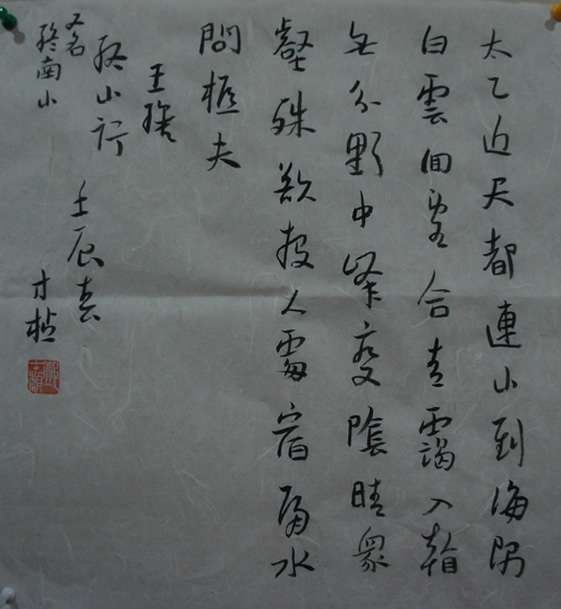 太乙近天都連山到海隅
白雲回望合青靄入看
無分野中峰變陰晴衆
壑殊欲投人處宿隔水
問樵夫
王維
終山行
又名
終南山
壬辰春
才